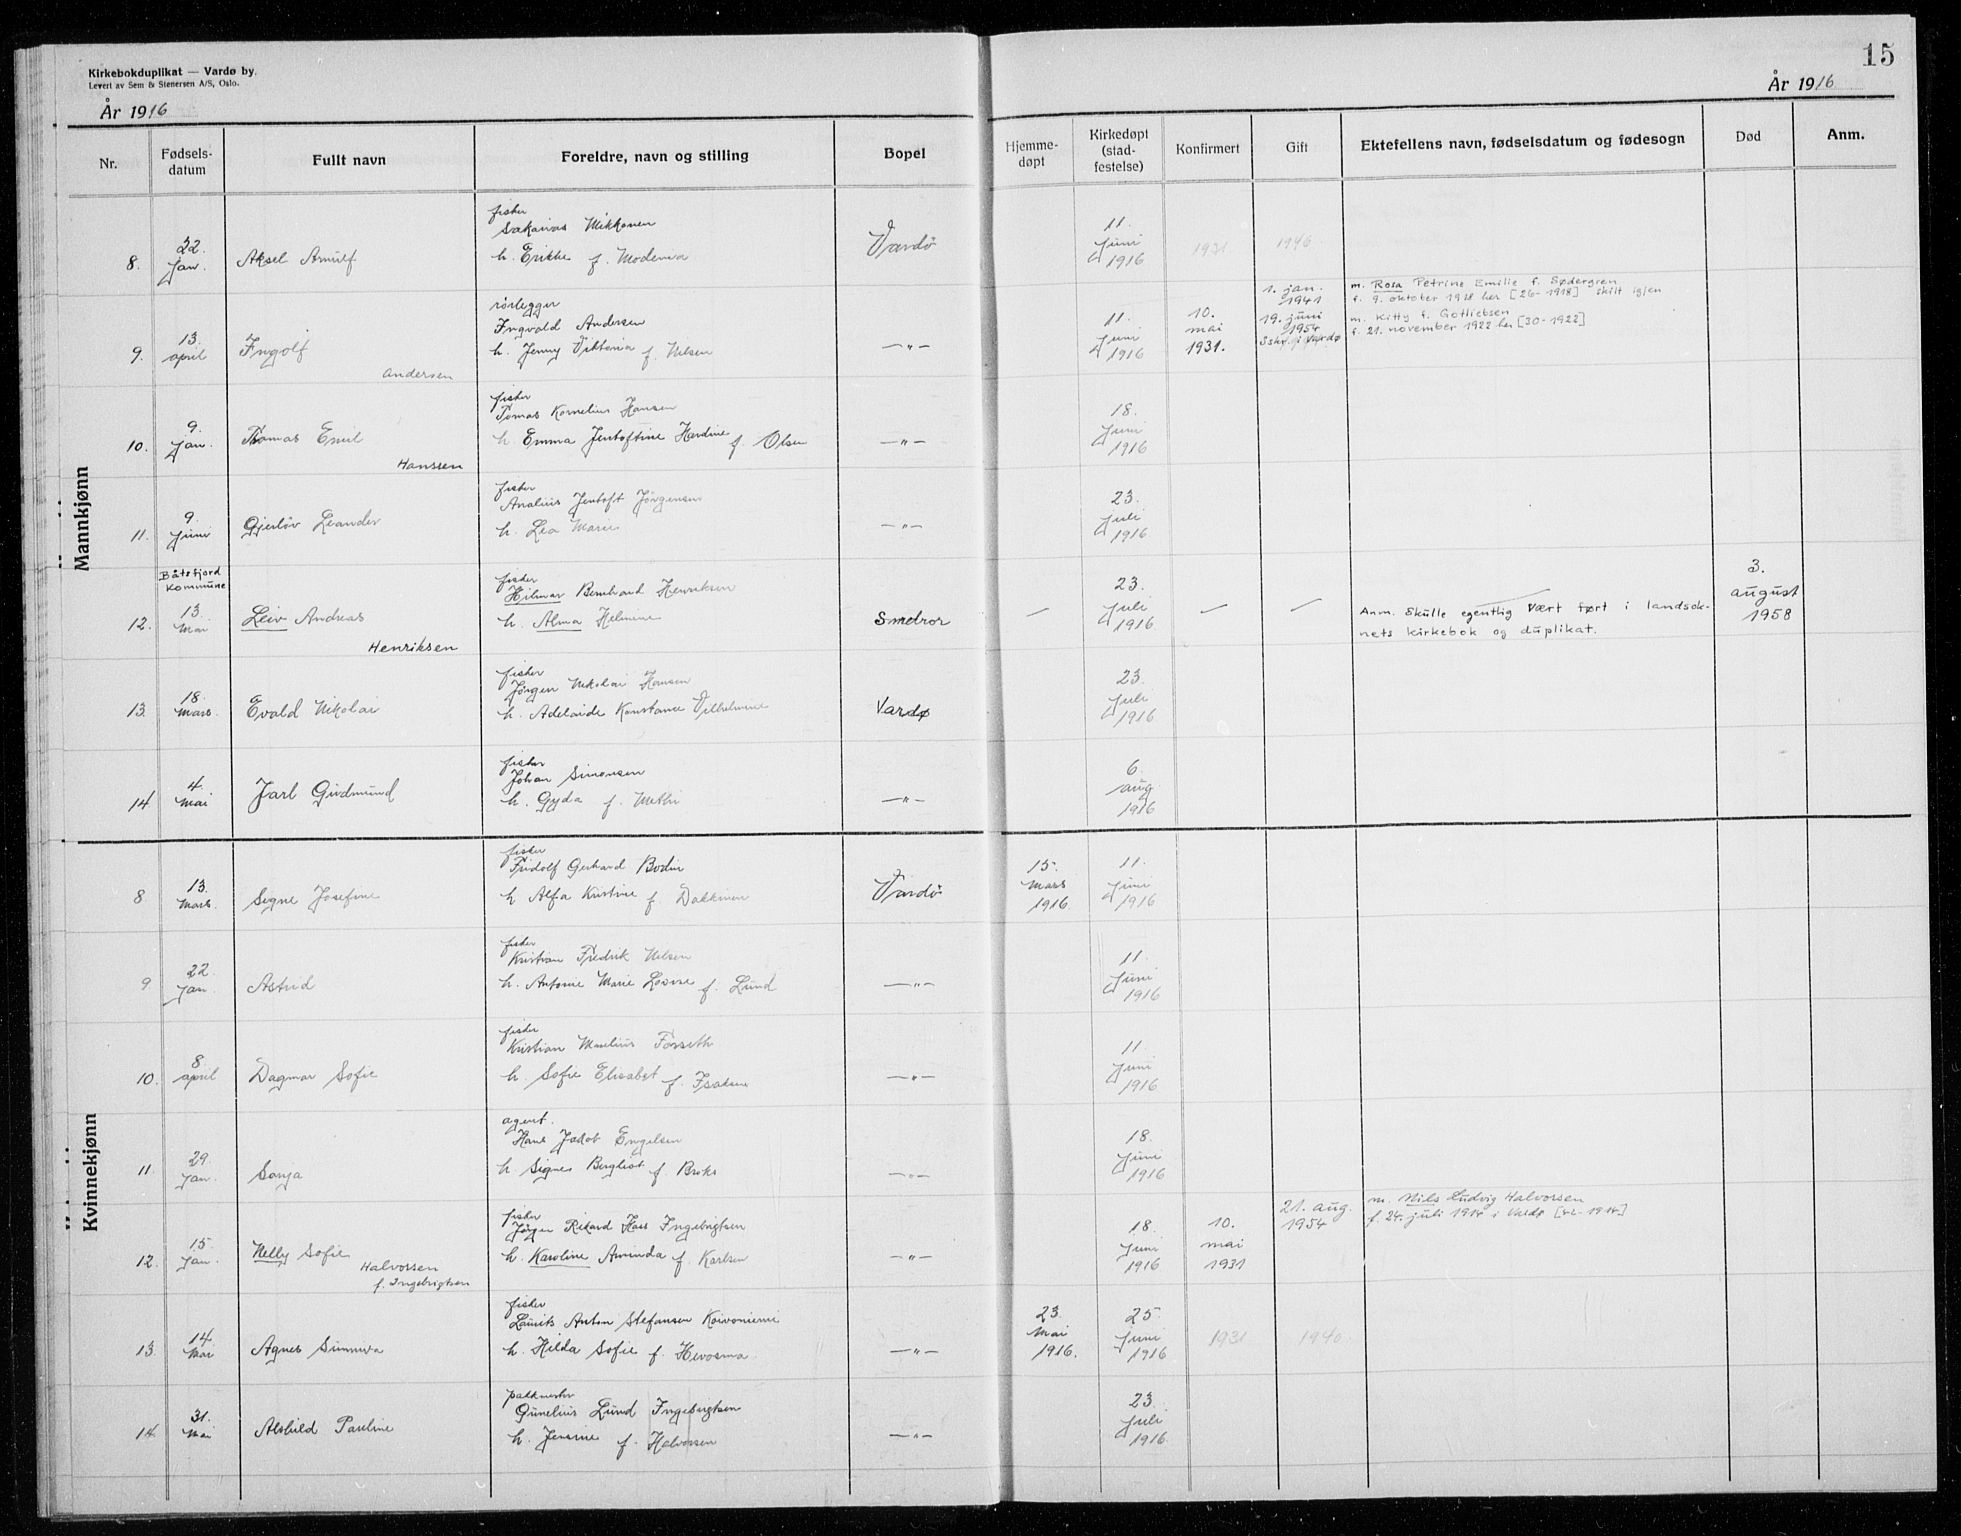 15
Kirkebokduplikat — Vardø by.
Levert av Sem & Stenersen A/S, Oslo.
År 1916
År 1916
Nr. Fødselsdatum Fullt navn Foreldre, navn og stilling Bopel Hjemmedøpt Kirkedøpt (stadfestelse) Konfirmert Gift Ektefellens navn, fødselsdatum og fødesogn Død Anm.
Mannkjønn
fisker
8. 22. Jan. Aksel Arnulf
h. Erikke f. Vardö 11. Juni 1916 1931 1946
rörlegger
Ingvald Andersen
9. 13. april Ingolf
h. Jenny Viktoria f. Nilsen —"— 11 Juni 1916 10. mai 1931.
Andersen
1. jan. 1941 m. Rosa Petrine Emilie f. Södergren
f. 9. oktober 1918 her [26-1918] skilt igjen
19. juni 1954 m. Kitty f. Gotliebsen
f. 21. november 1922 her [30-1922]
i Vardø
fisker
Tomas Kornelius Hansen
10. 9. Jan. Tomas Emil
h. Emma Jentoftine Hardine f. Olsen —"— 18. Juni 1916
Hanssen
fisker
Analius Jentoft Jörgensen
11. 9. Juni Gjerlöv Leander
h. Lea Marie —"— 23. Juli 1916
Båtsfjord
Kommune
fisker
Hilmar Bernhard Henriksen
12. 13. Mai Leiv Andreas
h. Alma Helmine Smelror — 23. Juli 1916 — —
Henriksen
Anm. Skulle egentlig vært ført i landsok-
nets kirkebok og duplikat.
3. august 1958
fisker
Jörgen Nikolai Hansen
13. 18. Mars. Evald Nikolai
h. Adelaide Konstance Vilhelmine Vardø 23. Juli 1916
fisker
Johan Simonsen
14 4. Mai Jarl Gudmund
h. Gyda f. —"— 6. aug. 1916
Kvinnekjønn
fisker
Fridolf Gerhard Bodin
8 13. Mars. Signe Josefine
h Alfa Kristine f. Vardö 15. Mars 1916 11. Juni 1916
fisker
Kristian Fredrik Nilsen
9 22. Jan. Astrid
h. Antonie Marie Lovise f. Lund —"— 11. Juni 1916
fisker
Kristian Maselius Forseth
10. 8 april Dagmar Sofie
h. Sofie Elisabet f. Isaksen —"— 11 Juni 1916
agent.
Hans Jakob Engelsen
11. 29. Jan. Sonja
h Signe Bergliot f. Broks —"— 18. Juni 1916
fisker
Jörgen Rikard Hass Ingebrigtsen
12. 15. Jan. Nelly Sofie
h. Karoline Aminda f. Karlsen —"— 18 Juni 1916 10. mai 1931
Halvorsen
f. Ingebrigtsen
21. aug. 1954 m. Nils Ludvig Halvorsen
f. 24. juli 1914 i Vardø [42-1914]
fisker
Laurits Anton Stefansen Koivoniemi
13. 14. Mai Agnes Sunniva
h. Hilda Sofie f. Hevosma —"— 23. Mai 1916. 25. Juni 1916 1931 1940.
pakkmester
Gunelius Lund Ingebrigtsen
14. 31. Mai Alshild Pauline
h. Jensine f. Halvorsen —"— 23. Juli 1916